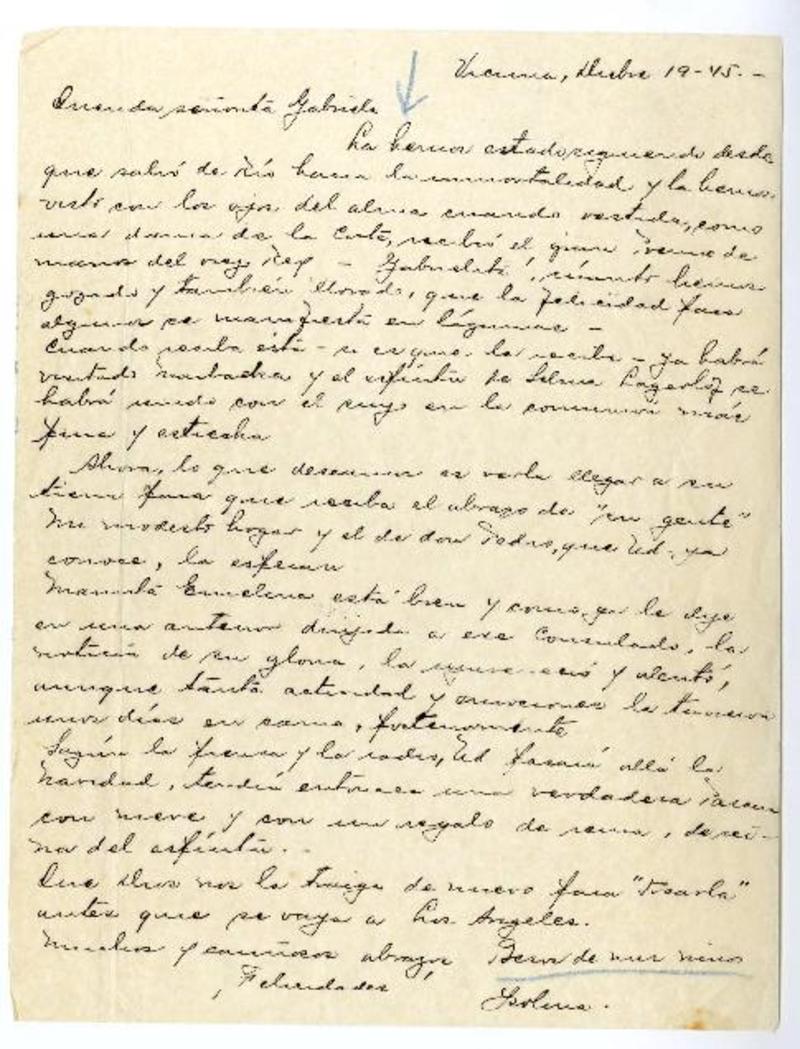 Vicuña, Dicbre 19-45. -
Querida señorita Gabriela
La hemos estado siguiendo desde
que salió de Río hacia la inmortalidad y la hemos
visto con los ojos del alma cuando vestida, como
una dama de la Corte, recibió el gran Premio de
manos del viejo Rey - Gabrielita, cuánto hemos
gozado y también llorado, que la felicidad para
algunos se manifiesta en lágrimas -
Cuando reciba ésta - si es que la recibe - ya habrá
visitado y el espíritu de Selma Lagerlöf se
habrá unido con el suyo en la comunión más
fina y estrecha
Ahora, lo que deseamos es verla llegar a su
tierra para que reciba el abrazo de "su gente"
Mi modesto hogar y el de don Pedro, que Ud. ya
conoce, la esperan
Mamita Emelina está bien y como ya le dije
en una anterior dirijida a ese Consulado, la
noticia de su gloria, la y alentó,
aunque tanta actividad y emociones la tuvieron
unos días en cama, posteriormente
Según la prensa y la radio, Ud pasará allá la
Navidad, tendrá entonces una verdadera Pascua
con nieve y con un regalo de reina, de rei-
na del espíritu. -
Que Dios nos la traiga de nuevo para
antes que se vaya a Los Angeles.
Muchos y cariñosos abrazos, Besos de mis niños
Felicidades
Isolina.